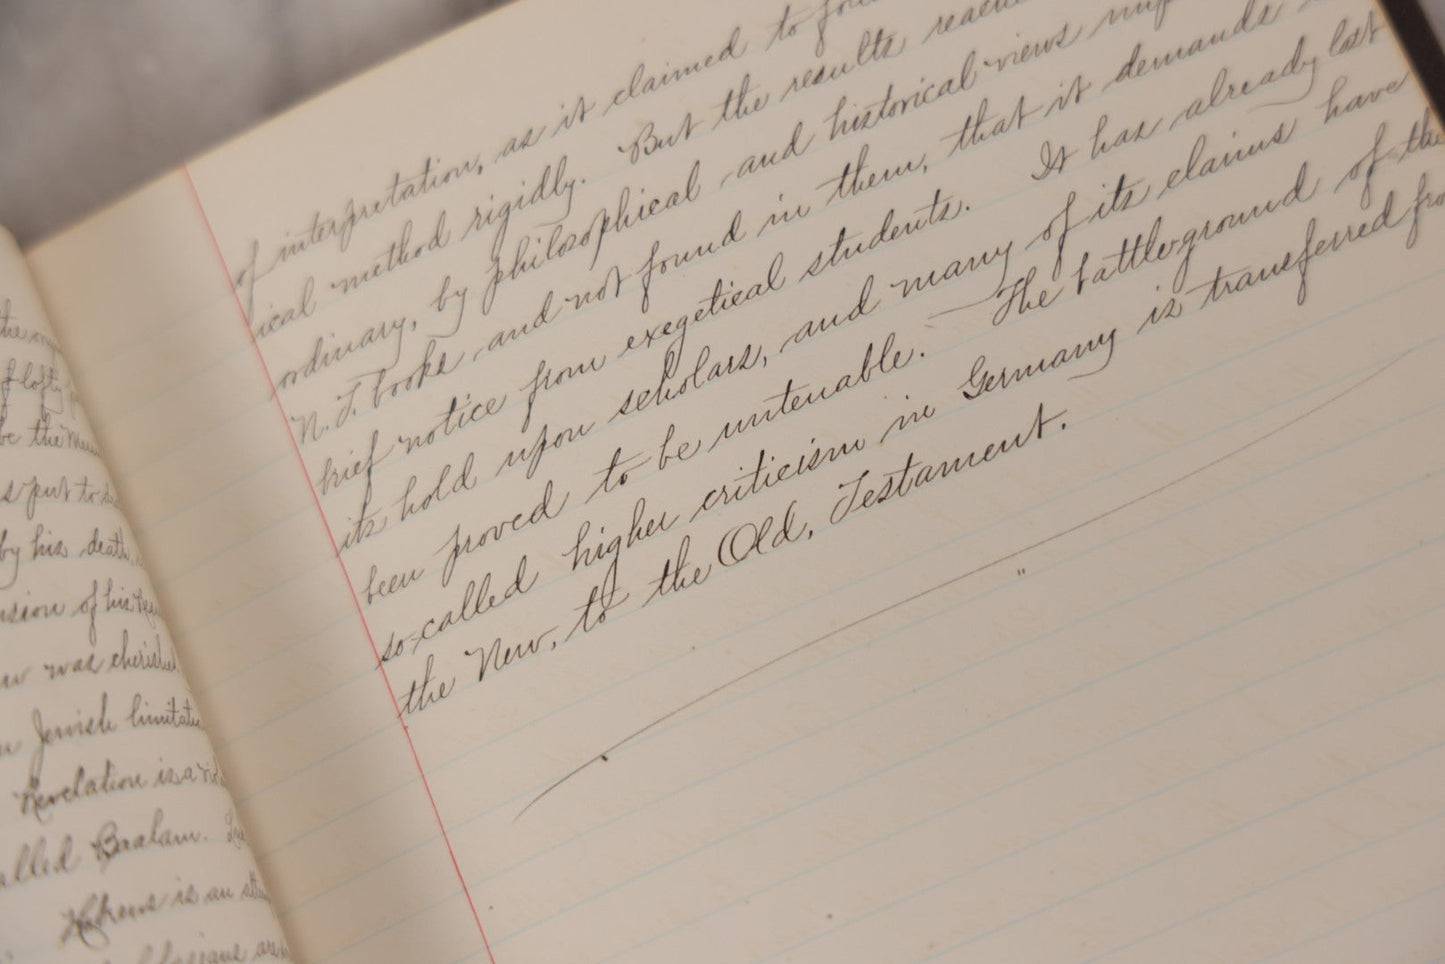 the
of lofty
be the
s put to
by his death,
nsion of his
was cherished
Jewish
Revelation is a
alled Bealam.
is an
of interpretation, as it claimed to
ical method rigidly. But the results
ordinary, by philosophical and historical views
N. T. books and not found in them, that it demands
brief notice from exegetical students. It has already lost
its hold upon scholars, and many of its claims have
been proved to be untenable. — The battle-ground of the
so-called higher criticism in Germany is transferred from
the New, to the Old, Testament.